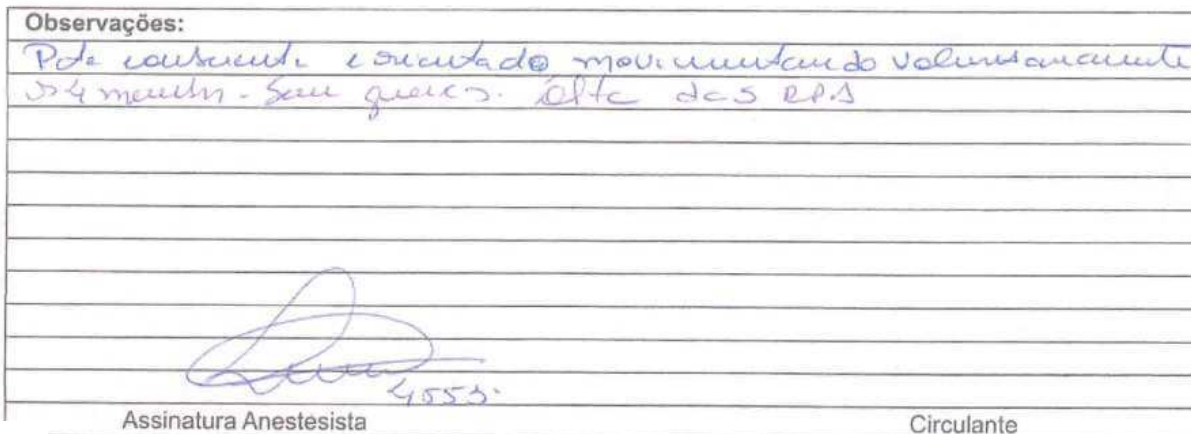 Observações:
Pcte consciente e orientado movimentando voluntariamente
os 4 membros. Sem queixas. Alta da SRPA
4553.
Assinatura Anestesista Circulante